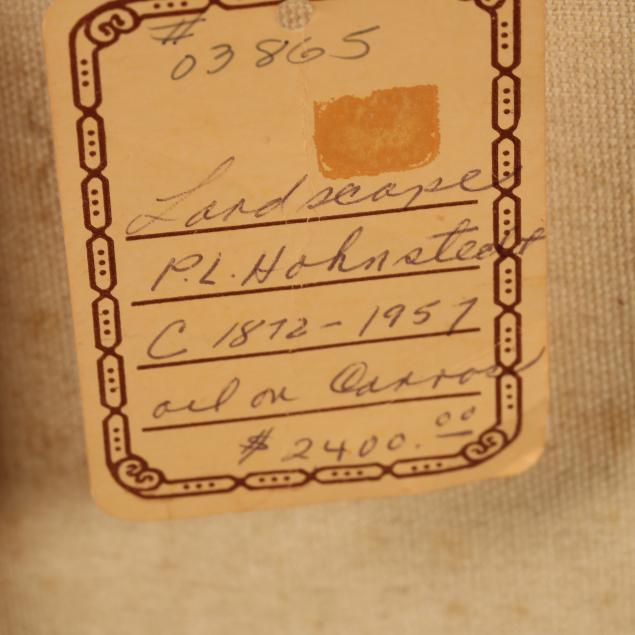 #
03865
Landscape
P.L. Hohnstedt
C 1872-1957
oil on Canvas
$2400.00